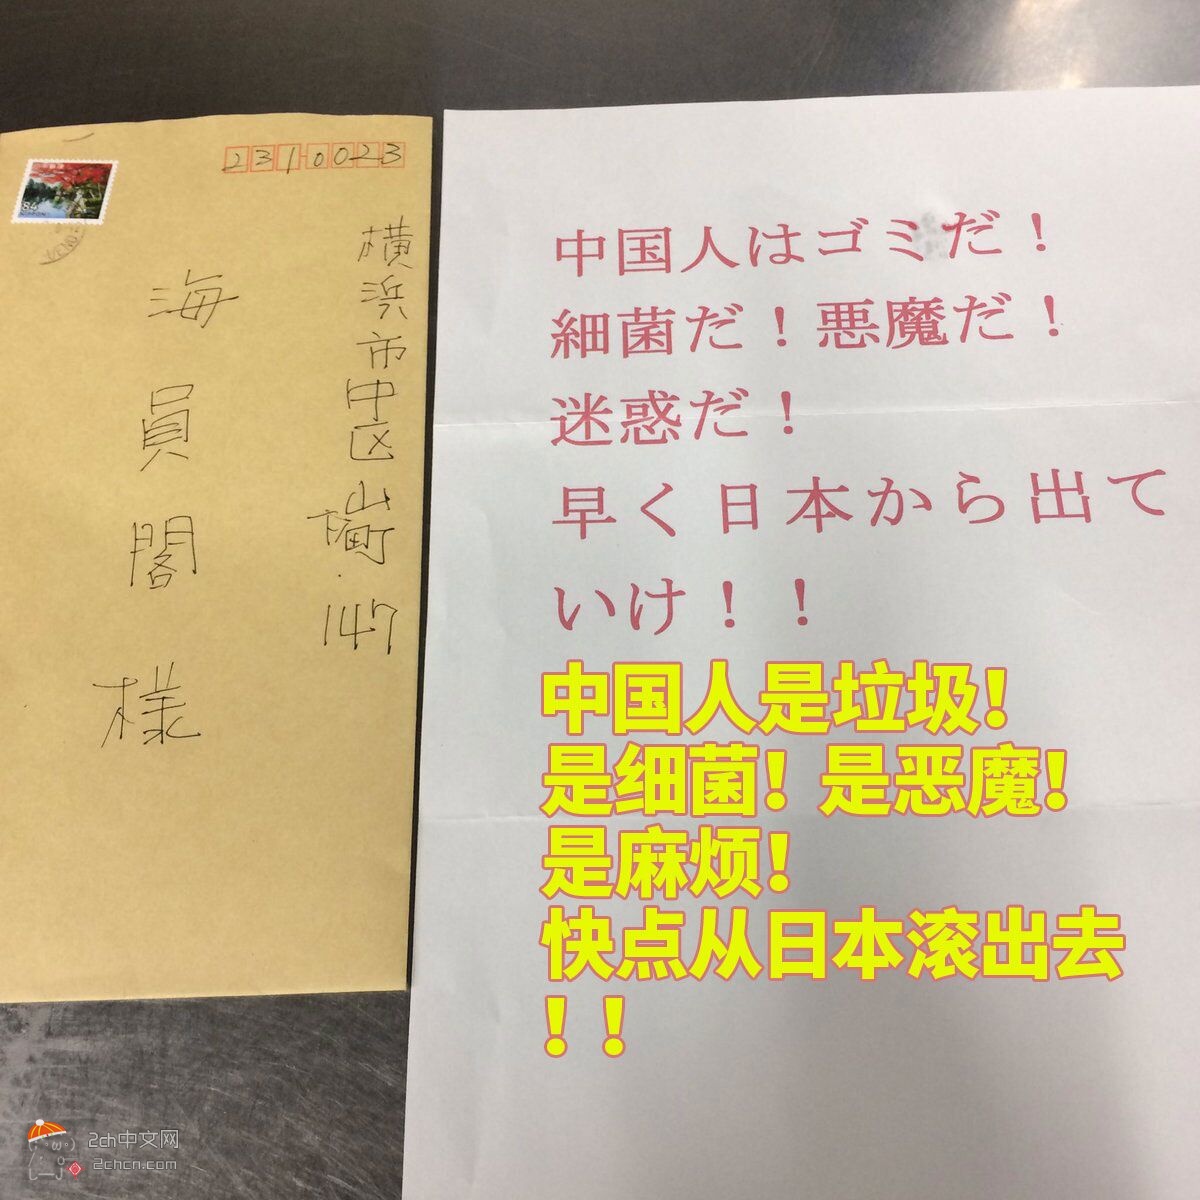 84
NIPPON
2310023
横浜市中区山下町147
海員閣様
中国人はゴミだ！
細菌だ！悪魔だ！
迷惑だ！
早く日本から出て
いけ！！
中国人是垃圾！
是细菌！是恶魔！
是麻烦！
快点从日本滚出去
！！
2ch中文网
2chcn.com